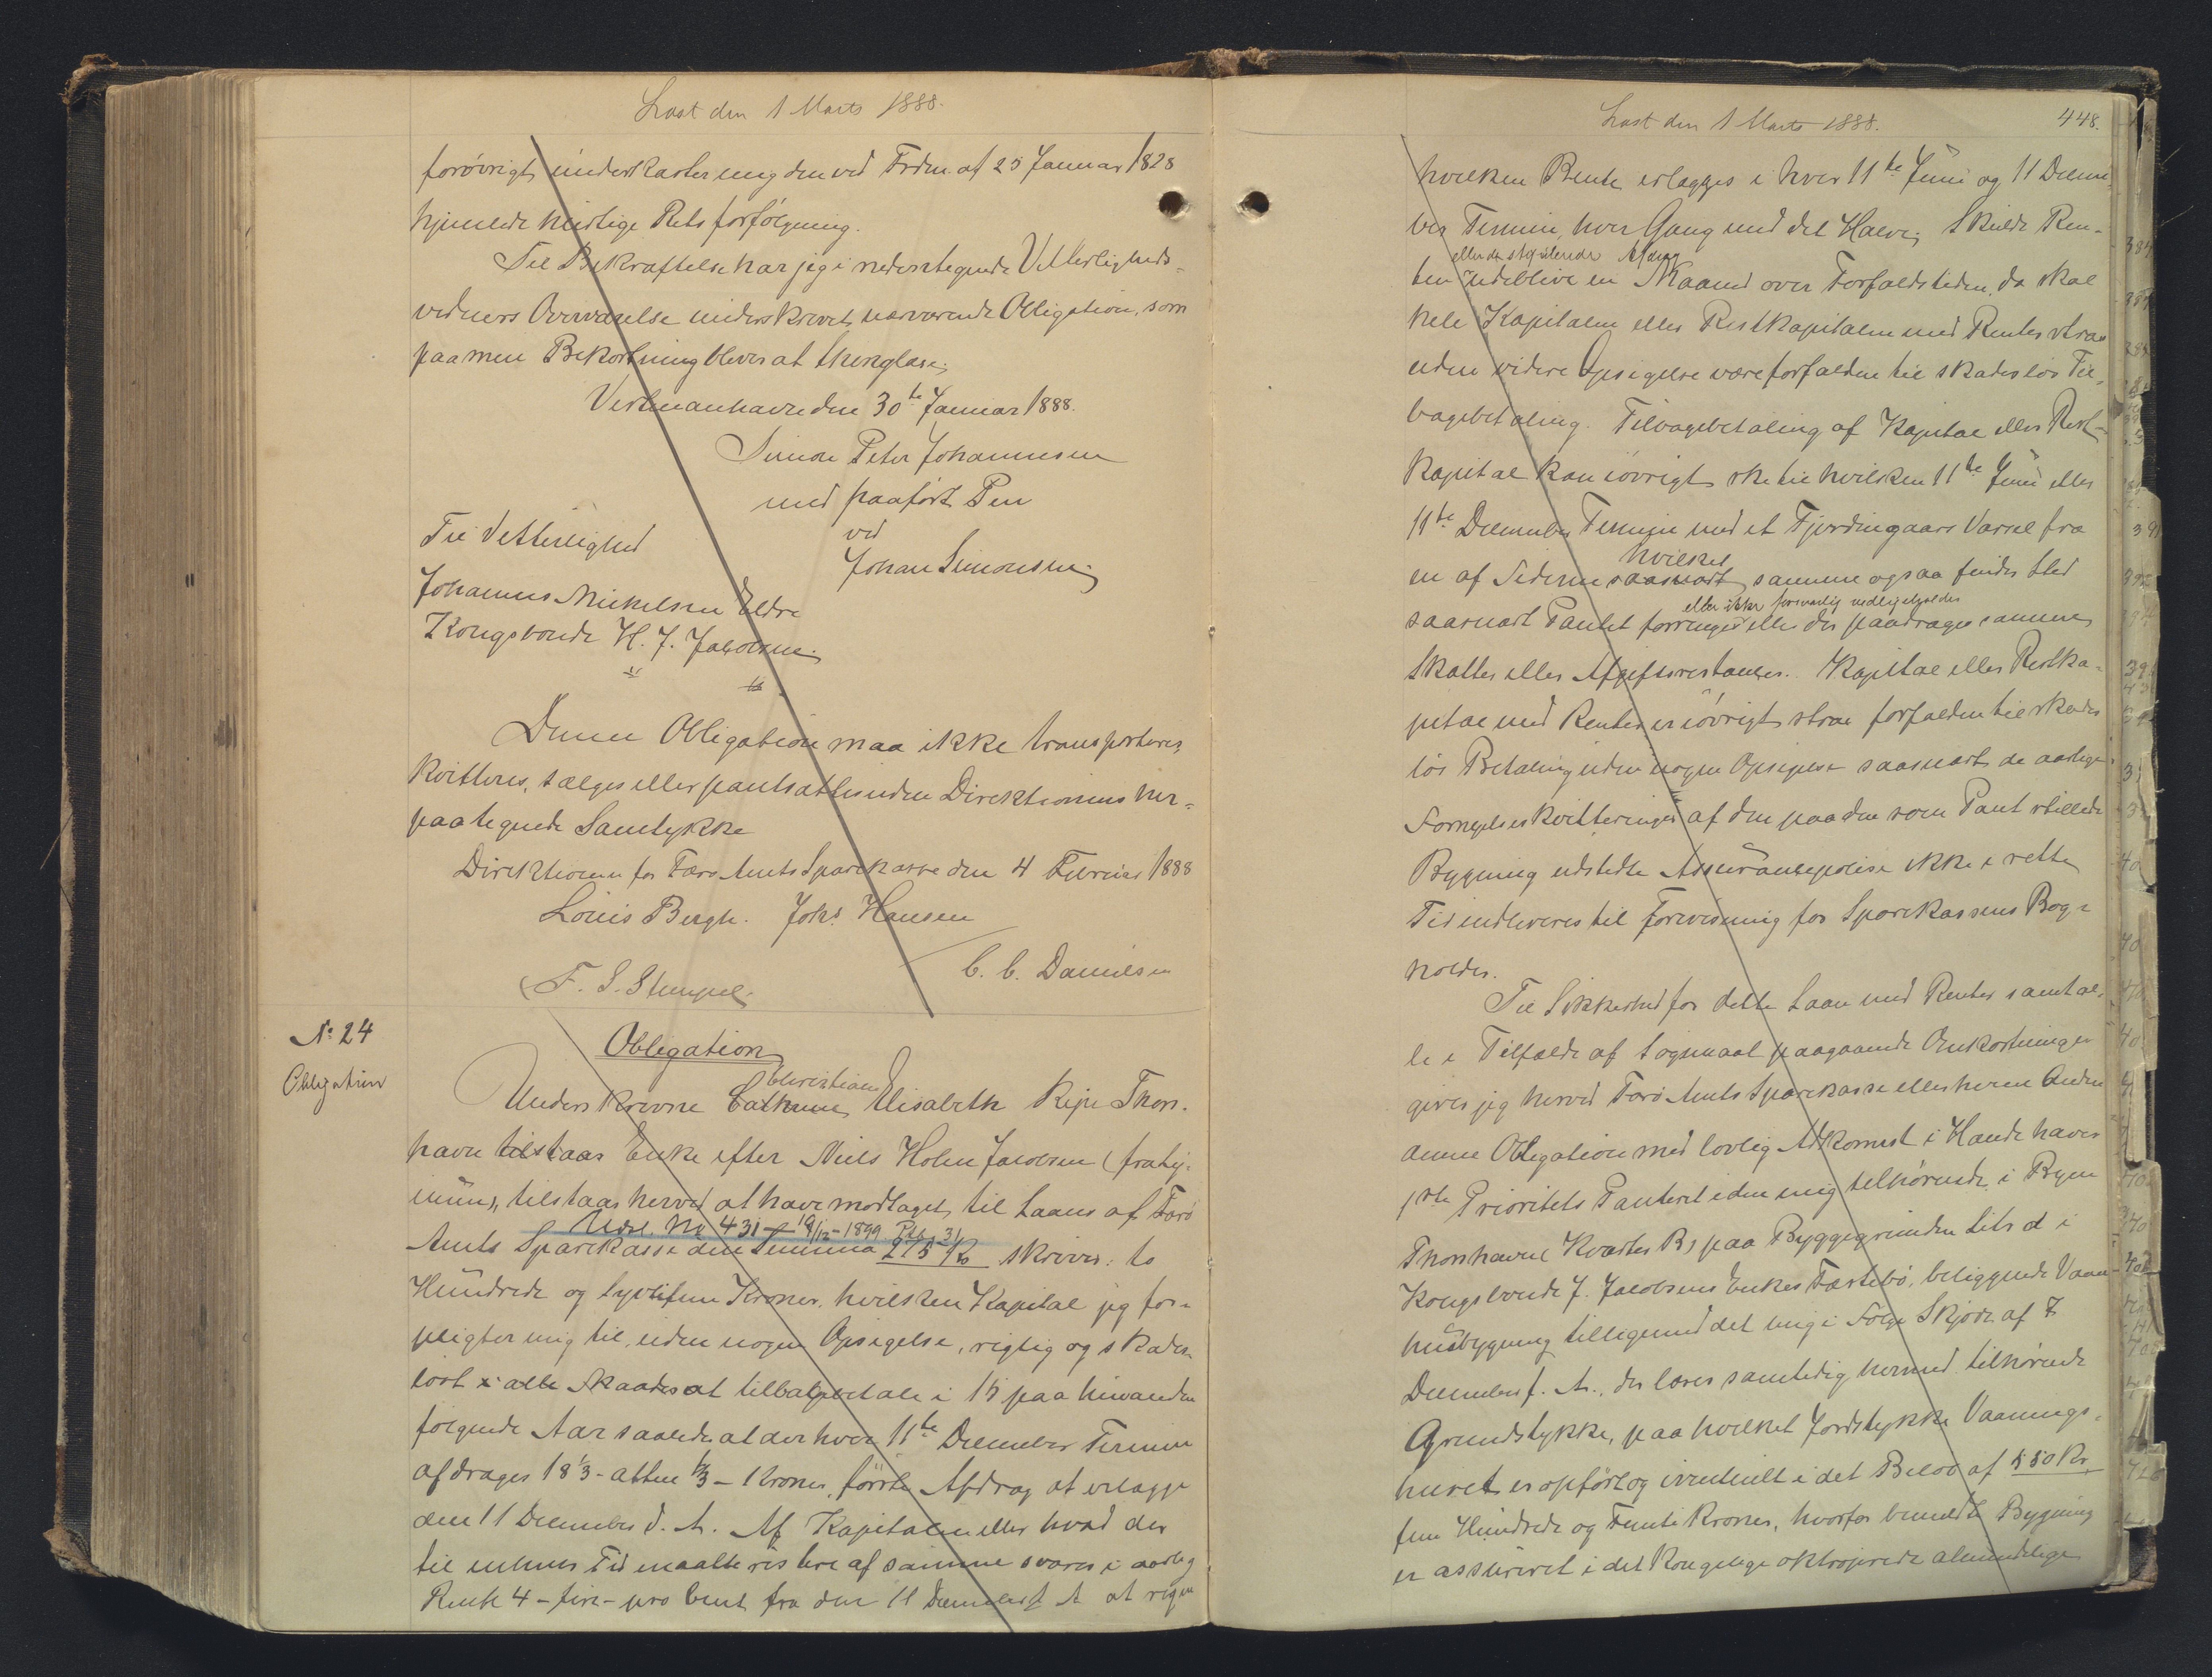 Læst den 1 Marts 1888.
forøvrigt underkaster mig den ved Frdn. af 25 Januar 1828
hjemlede hurtige Retsforfølgning.
Til Bekræftelse har jeg i nedentegnede Vitterligheds-
vidners Overværelse underskrevet nærværende Obligation, som
paa min Bekostning bliver at thinglæse.
Vestmanhavn den 30te Januar 1888.
Simon Peter Johannesen
med paaført Pen
ved
Johan Simonsen
Til Vitterlighed
Johannes Mickelsen Eldre
Kongsbonde H. J. Jacobsen
Denne Obligation maa ikke transporteres,
kvitteres, sælges eller pantsættes uden Direktionens her-
paategnede Samtykke
Direktionen for Færø Amts Sparekasse den 4 Februar 1888
Louis Bergh. Johs. Hansen
C. C. Danielsen
(F. S. Stempel)
No 24
Obligation
Obligation
Christiane
Underskrevne Cathrine Elisabeth Reje Thors-
havn tilstaar Enke efter Niels Holm Jacobsen (
tilstaar herved at have modtaget til Laans af Færø
Udsl. No 431 - 19/12-1899
Amts Sparekasse den Summa 275 Kr skriver: to
Hundrede og syvtifem Kroner, hvilken Kapital jeg for-
pligter mig til, uden nogen Opsigelse, rigtig og skades-
løst i alle Maader at tilbagebetale i 15 paa hinanden
følgende Aar saaledes at der hver 11te December Termin
afdrages 18 1/3 - atten 1/3 - Kroner, første Afdrag at erlægge
den 11 December d. A. Af Kapitalen eller hvad der
til enhver Tid maatte restere af samme svares i aarlig
Rente 4 - fire - pro Cent fra den 11 December f. A. at regne
Læst den 1 Marts 1888.
448.
hvilken Rente erlægges i hver 11te Juni og 11 Decem-
ber Termin, hver Gang med det Halve; Skulde Ren-
eller det stipulerede Afdrag
ten udeblive en Maaned over Forfaldstiden, da skal
hele Kapitalen eller Restkapitalen med Renter strax
uden videre Opsigelse være forfalden til skadesløs Til-
bagebetaling. Tilbagebetaling af Kapital eller Rest-
kapital kan iøvrigt ske til hvilken 11te Juni eller
11te December Termin med et Fjerdingaars Varsel fra
hvilket
en af Siderne saasnart samme ogsaa finder Sted
eller ikke forsvarlig vedligeholdes
saasnart Pantet forringes eller der paadrages samme
Skatter eller Afgiftsrestancer. Kapital eller Restka-
pital med Renter er iøvrigt strax forfalden til skades-
løs Betaling uden nogen Opsigelse saasnart de aarlige
Fornyelseskvitteringer af den paa den som Pant stillede
Bygning udstedte Assurancepolice ikke i rette
Tid indleveres til Forevisning for Sparekassens Bog-
holder.
Til Sikkerhed for dette Laan med Renter samt al-
le i Tilfælde af Søgsmaal paagaaende Omkostninger
giver jeg herved Færø Amts Sparekasse eller hvem
denne Obligation med lovlig Adkomst i Hænde haver
1ste Prioritets Panteret i den mig tilhørende, i Byen
Thorshavns Kvarter B, paa Byggegrunden Litr d i
Kongsbonde J. Jacobsens Enkes Fæstebø, beliggende Vaan-
husbygning tilligemed det mig i Følge Skjøde af 7
December f. A., der læses samtidig hermed tilhørende
Grundstykke, paa hvilket Jordstykke Vaanings-
huset er opført og inventeret i det Beløb af 550 Kr
fem Hundrede og Femti Kroner, hvorfor bemeldte Bygning
er assureret i det Kongelige oktrojerede almindelige